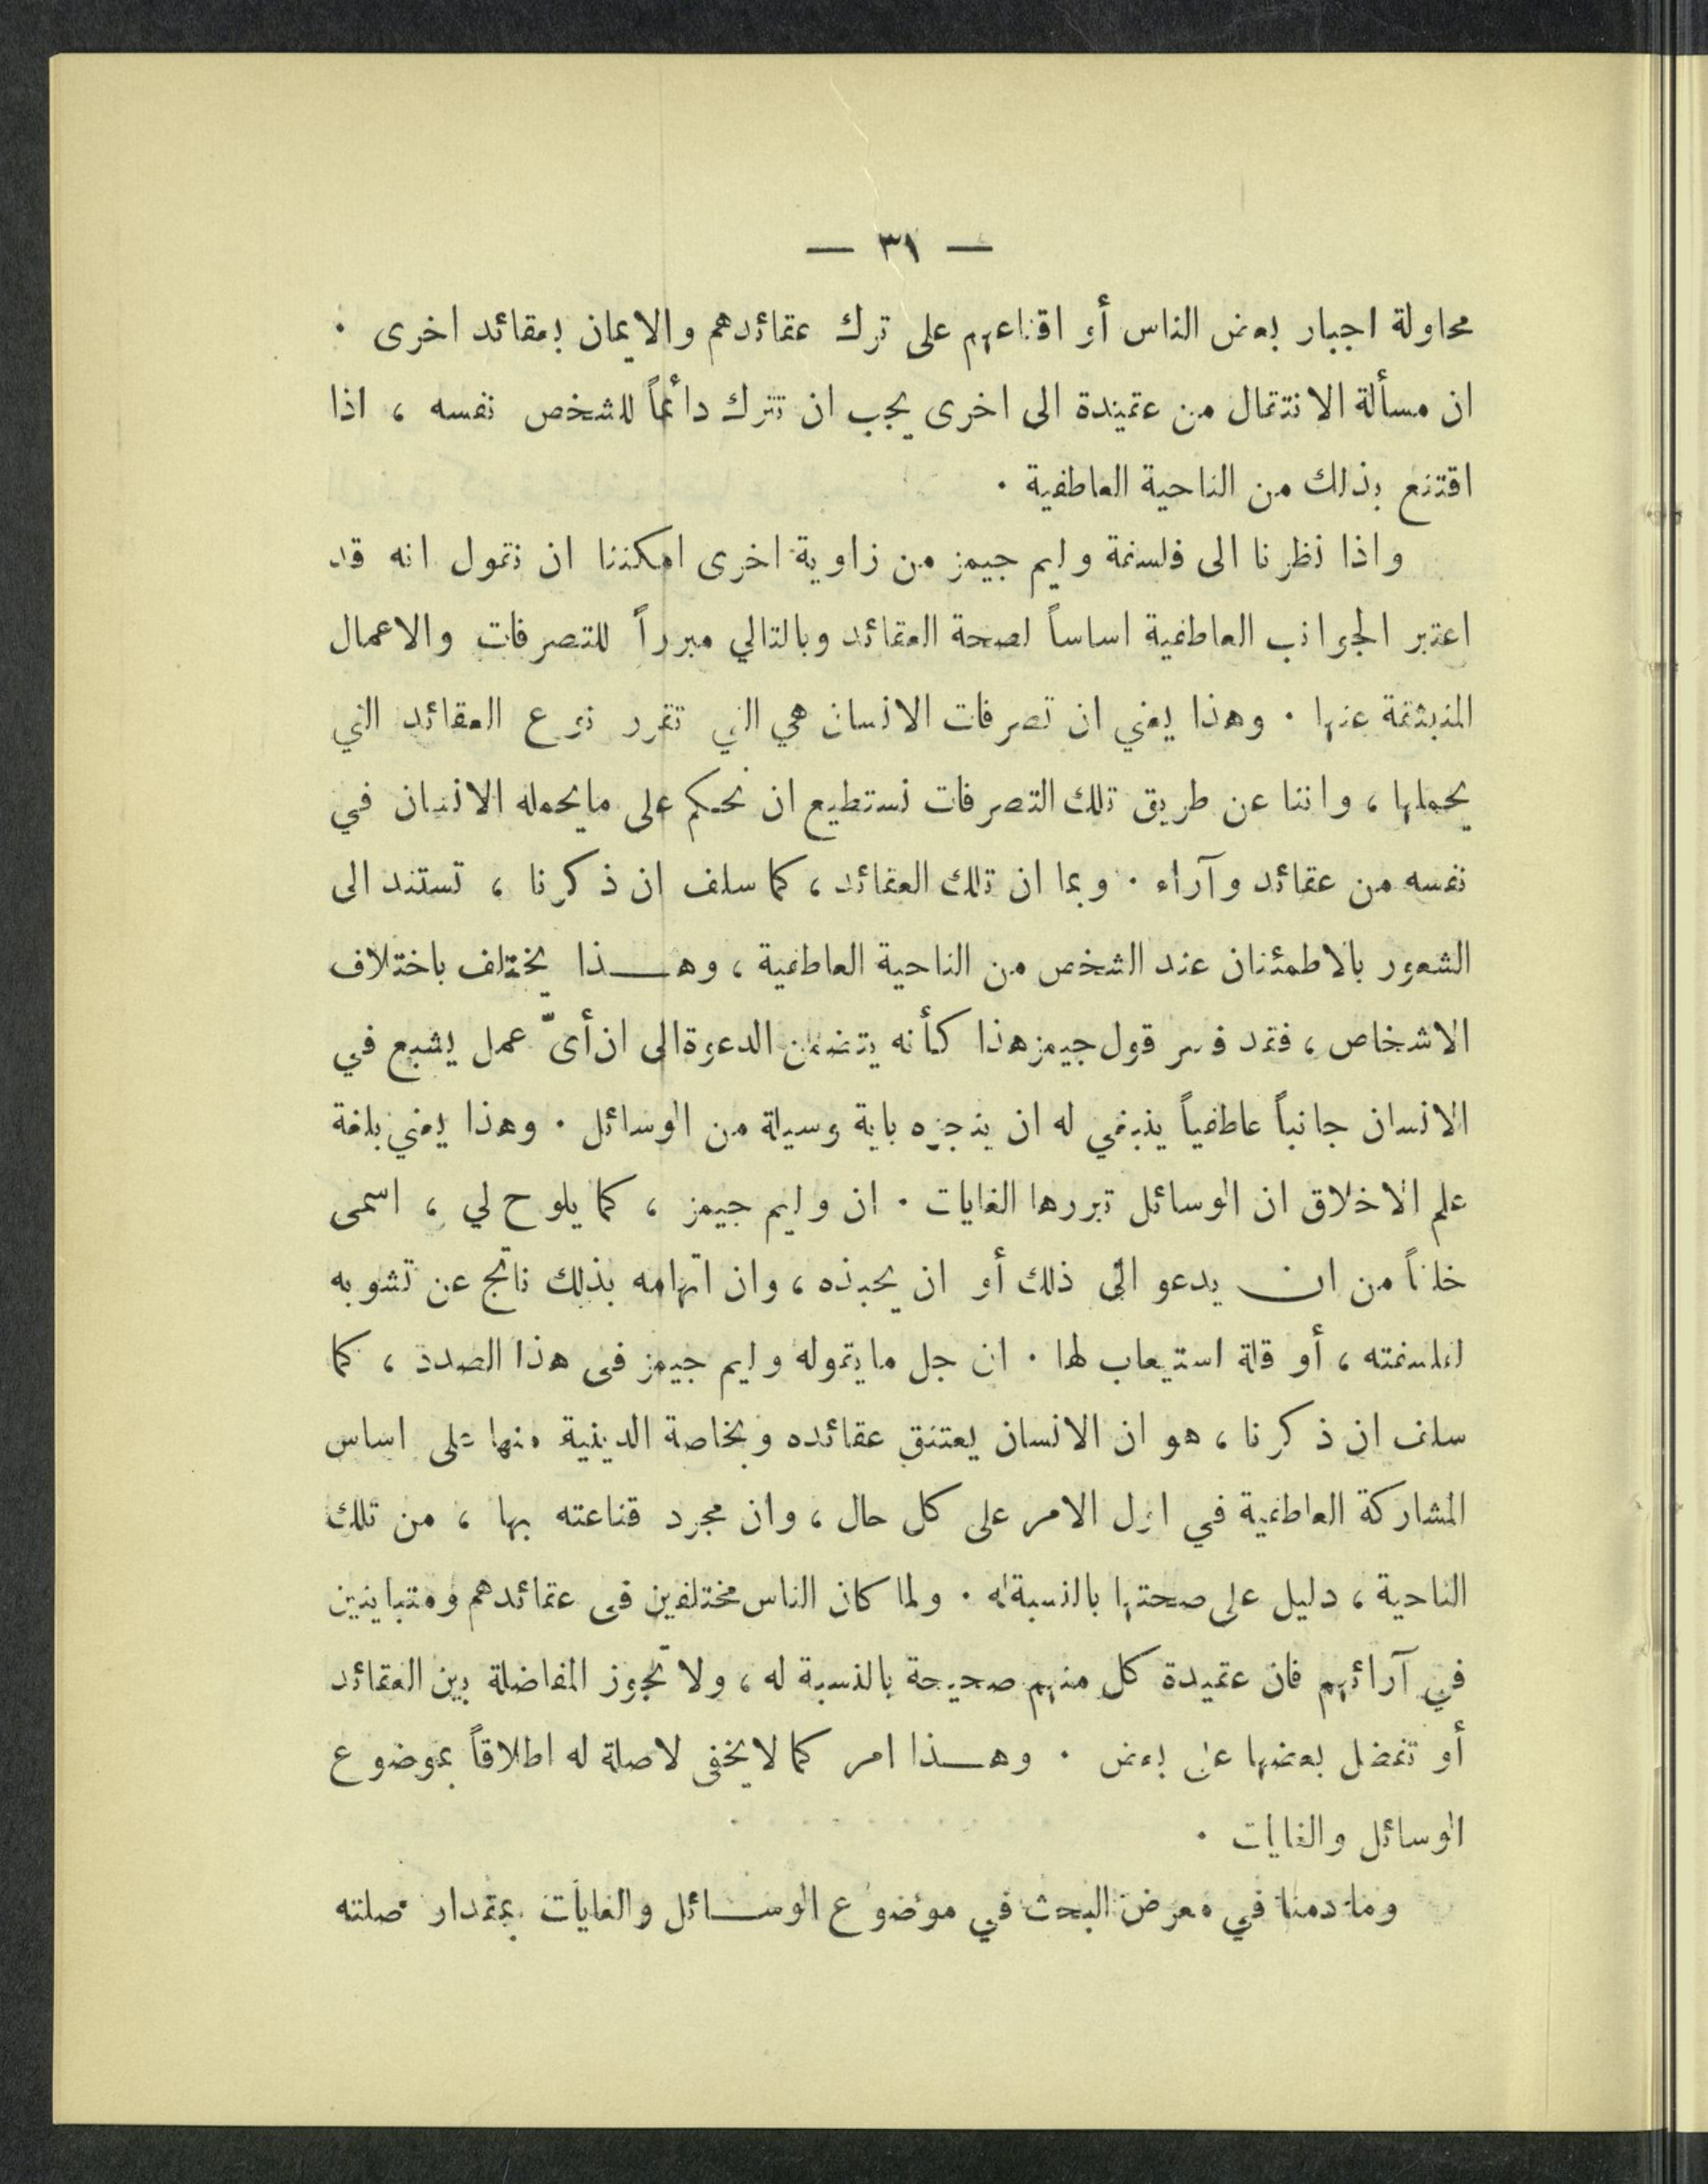 — ٣١ —
محاولة اجبار بعض الناس أو اقناعهم على ترك عقائدهم والايمان بعقائد اخرى .
ان مسألة الانتقال من عقيدة الى اخرى يجب ان تترك دائماً للشخص نفسه ، اذا
اقتنع بذلك من الناحية العاطفية .
واذا نظرنا الى فلسفة وليم جيمز من زاوية اخرى امكننا ان نقول انه قد
اعتبر الجوانب العاطفية اساساً لصحة العقائد وبالتالي مبرراً للتصرفات والاعمال
المنبثقة عنها . وهذا يعني ان تصرفات الانسان هي التي تقرر نوع العقائد التي
يحملها ، واننا عن طريق تلك التصرفات نستطيع ان نحكم على مايحمله الانسان في
نفسه من عقائد وآراء . وبما ان تلك العقائد ، كما سلف ان ذكرنا ، تستند الى
الشعور بالاطمئنان عند الشخص من الناحية العاطفية ، وهـــذا يختلف باختلاف
الاشخاص ، فقد فسر قول جيمز هذا كأنه يتضمن الدعوة الى ان أيّ عمل يشبع في
الانسان جانباً عاطفياً ينبغي له ان ينجزه باية وسيلة من الوسائل . وهذا يعني بلغة
علم الاخلاق ان الوسائل تبررها الغايات . ان وليم جيمز ، كما يلوح لي ، اسمى
خلقاً من ان يدعو الى ذلك أو ان يحبذه ، وان اتهامه بذلك ناتج عن تشويه
لفلسفته ، أو قلة استيعاب لها . ان جل مايقوله وليم جيمز في هذا الصدد ، كما
سلف ان ذكرنا ، هو ان الانسان يعتنق عقائده وبخاصة الدينية منها على اساس
المشاركة العاطفية في اول الامر على كل حال ، وان مجرد قناعته بها ، من تلك
الناحية ، دليل على صحتها بالنسبة له . ولما كان الناس مختلفين في عقائدهم ومتباينين
في آرائهم فان عقيدة كل منهم صحيحة بالنسبة له ، ولا تجوز المفاضلة بين العقائد
أو تفضل بعضها على بعض . وهـــذا امر كما لايخفى لاصلة له اطلاقاً بموضوع
الوسائل والغايات .
وما دمنا في معرض البحث في موضوع الوســـائل والغايات بمقدار صلته